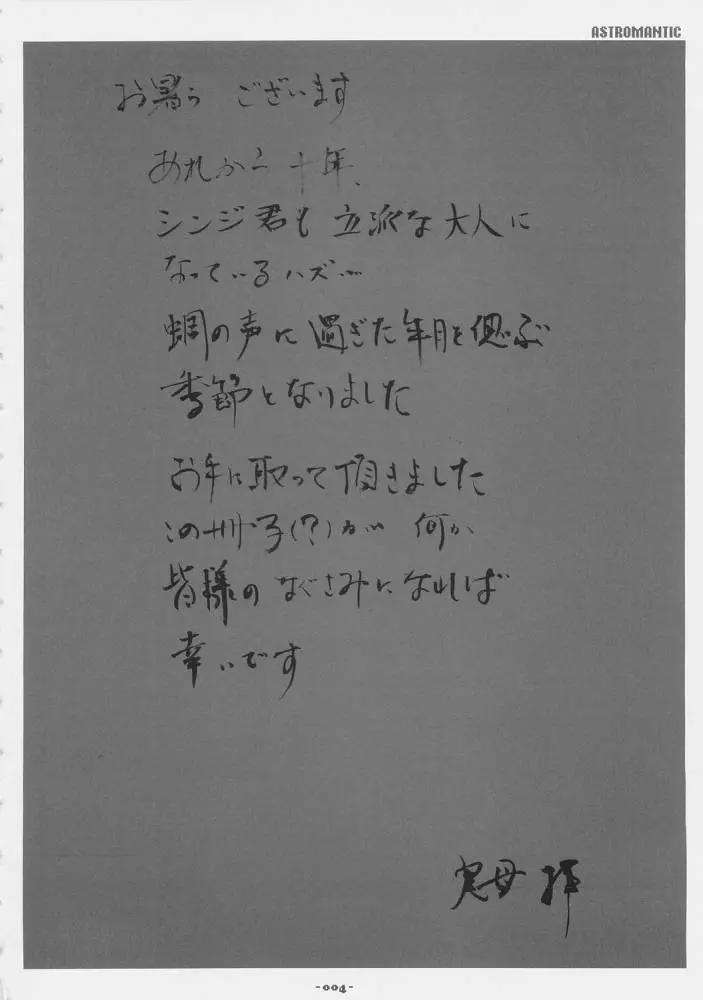 ASTROMANTIC
お暑う ございます
あれから 十年、
シンジ君も 立派な大人に
なっているハズ…
蜩の声に 過ぎた年月を偲ぶ
季節となりました
お手に取って頂きました
この冊子(?)が 何か
皆様の なぐさみになれば
幸いです
拝
-004-